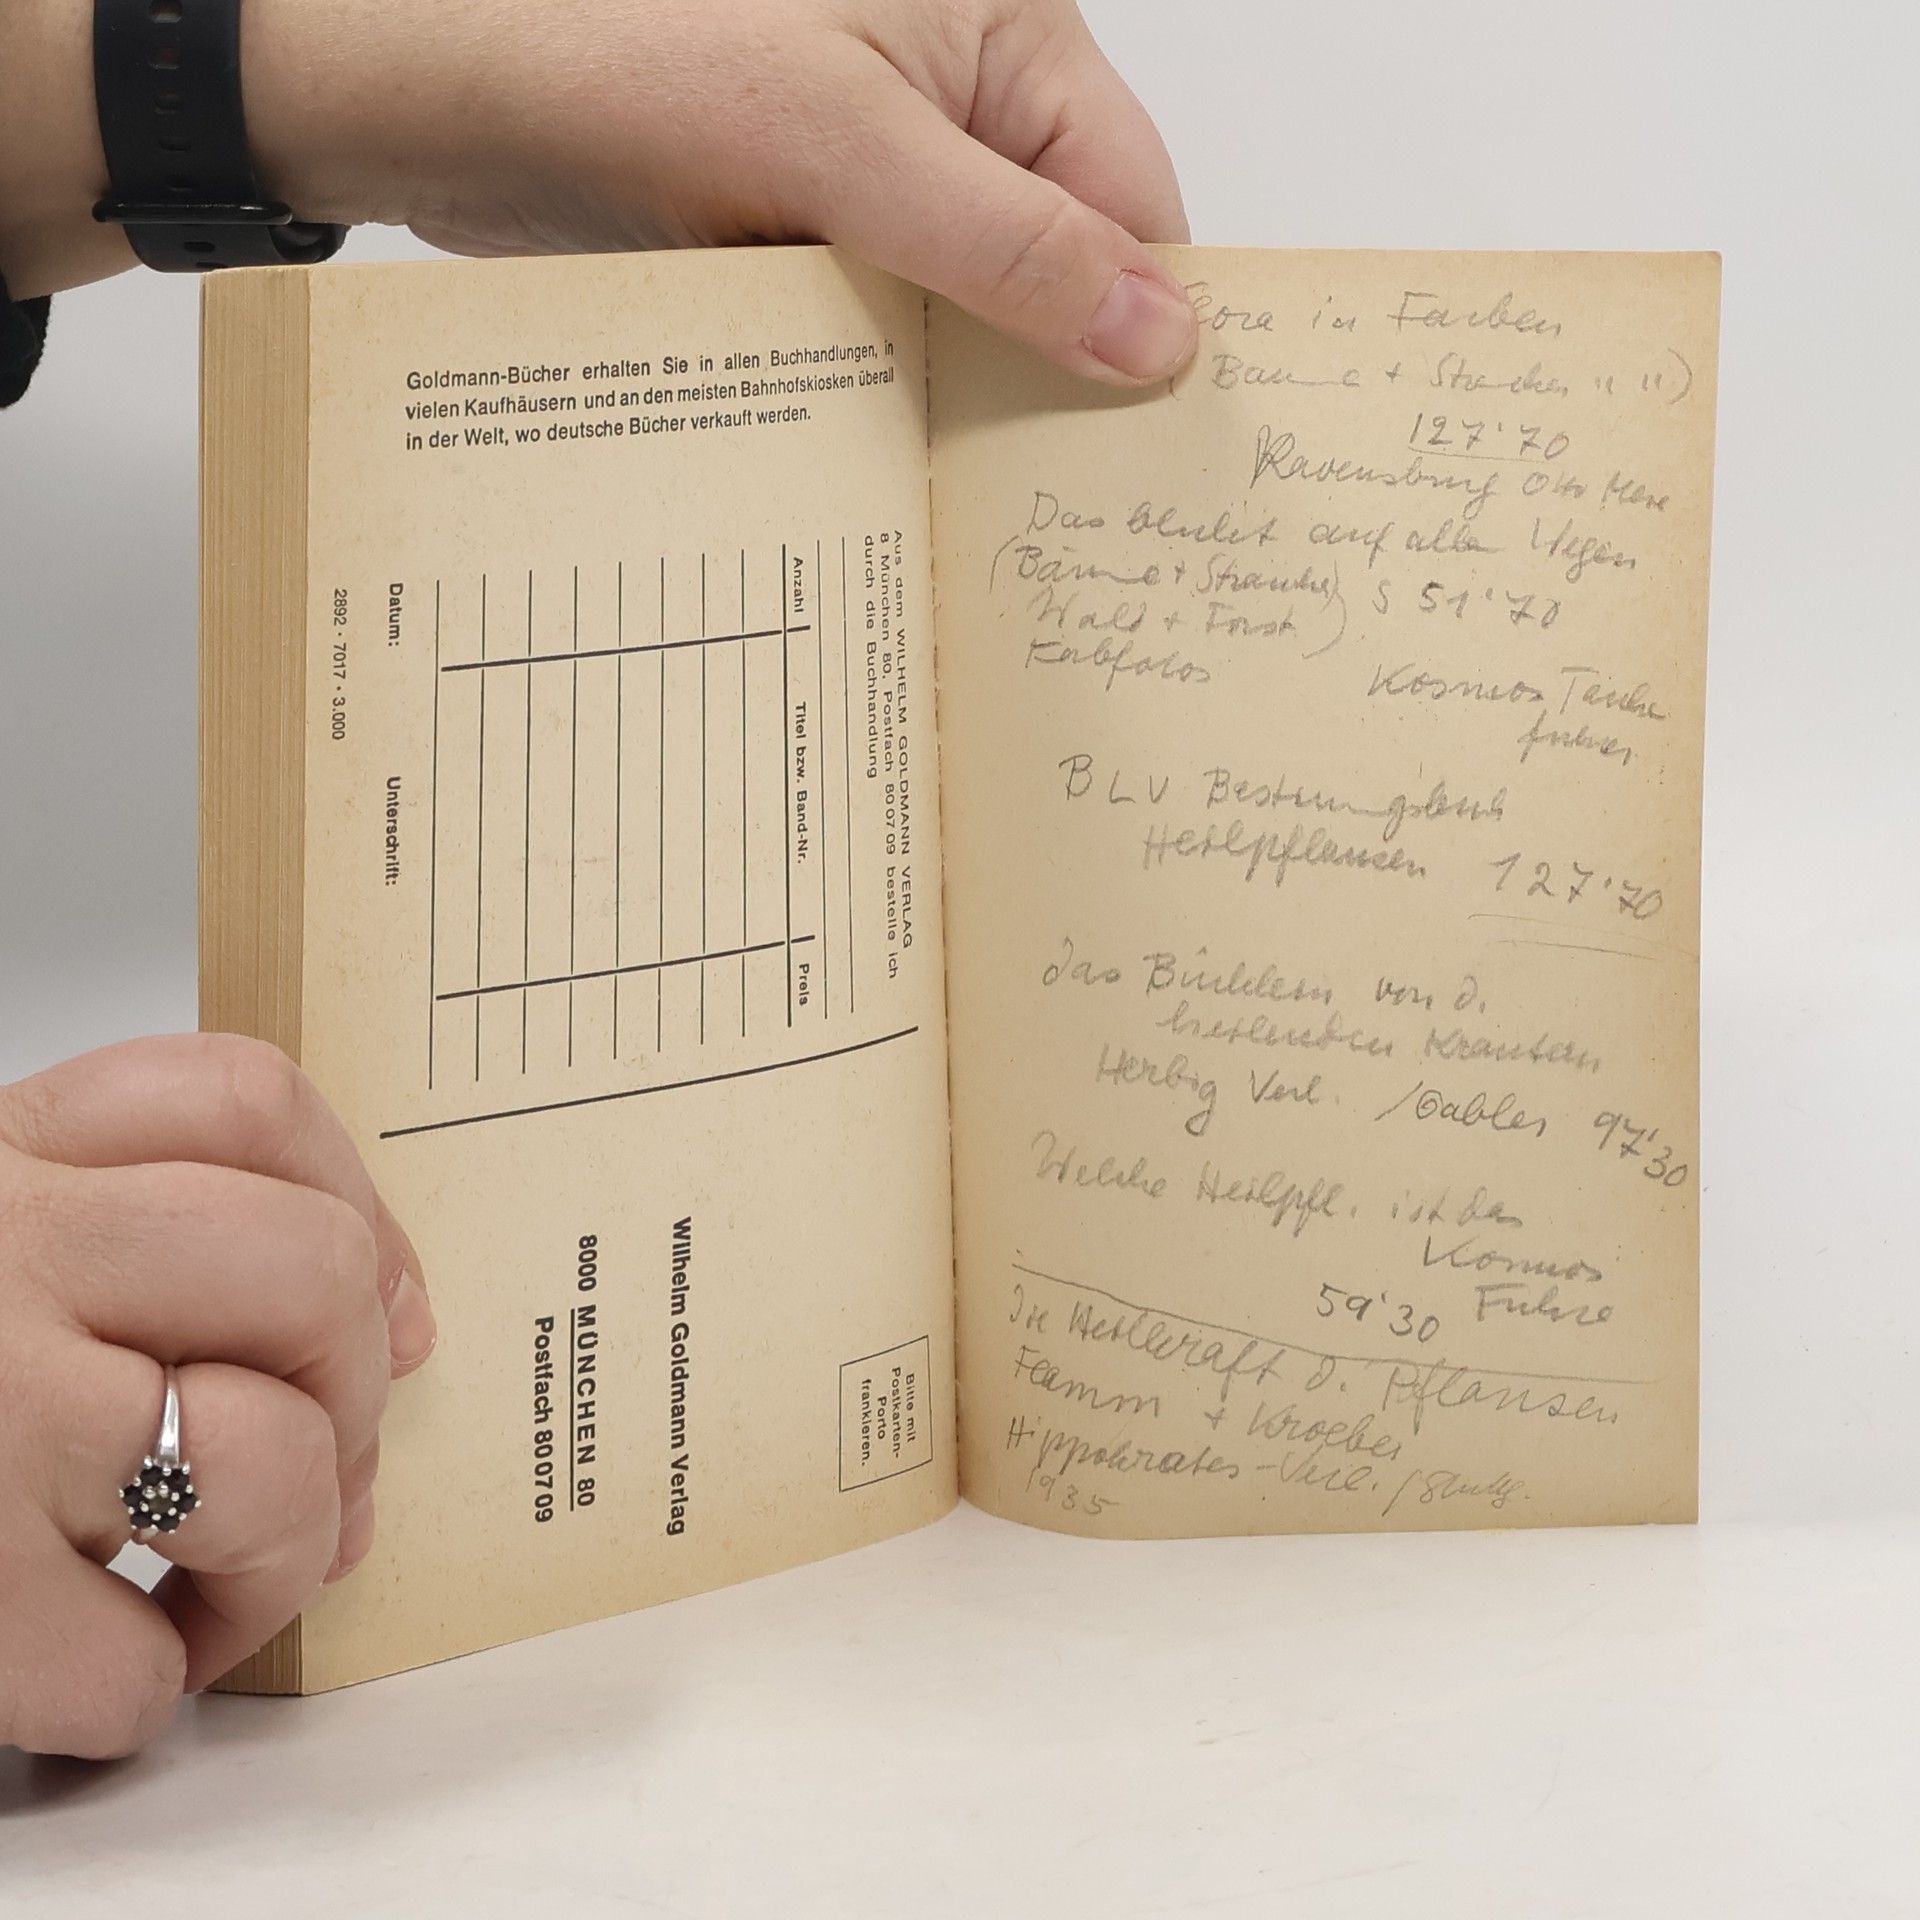 Goldmann-Bücher erhalten Sie in allen Buchhandlungen, in
vielen Kaufhäusern und an den meisten Bahnhofskiosken überall
in der Welt, wo deutsche Bücher verkauft werden.
Aus dem WILHELM GOLDMANN VERLAG
8 München 80, Postfach 80 07 09 bestelle ich
durch die Buchhandlung
Anzahl Titel bzw. Band-Nr. Preis
Datum: Unterschrift:
2892 · 7017 · 3.000
Bitte mit
Postkarten-
Porto
frankieren.
Wilhelm Goldmann Verlag
8000 MÜNCHEN 80
Postfach 80 07 09
Flora in Farben
(Bäume + Sträucher " ")
127'70
Ravensburg Otto
Das blüht auf allen Wegen
(Bäume + Sträucher) S 51'70
Wald + Forst)
Farbfotos
Kosmos
BLV Bestimmungsbuch
Heilpflanzen 127'70
Das Büchlein von d.
heilenden Kräutern
Herbig Verl. / Gabler 97'30
Welche Heilpfl. ist das
Kosmos
59'30 Führer
Die Heilkraft d. Pflanzen
Flamm + Kroeber
Hippokrates-Verl. / Stuttg.
1935